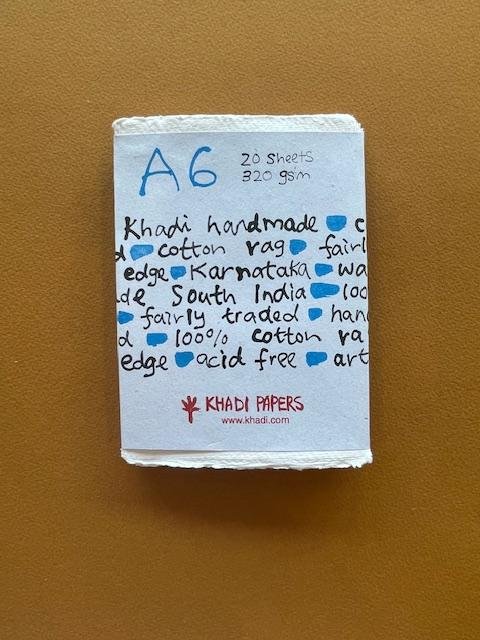 A6
20 sheets
320 gsm
Khadi handmade c
d cotton rag fairl
edge Karnataka wa
de South India 100
fairly traded han
d 100% cotton ra
edge acid free art
KHADI PAPERS
www.khadi.com